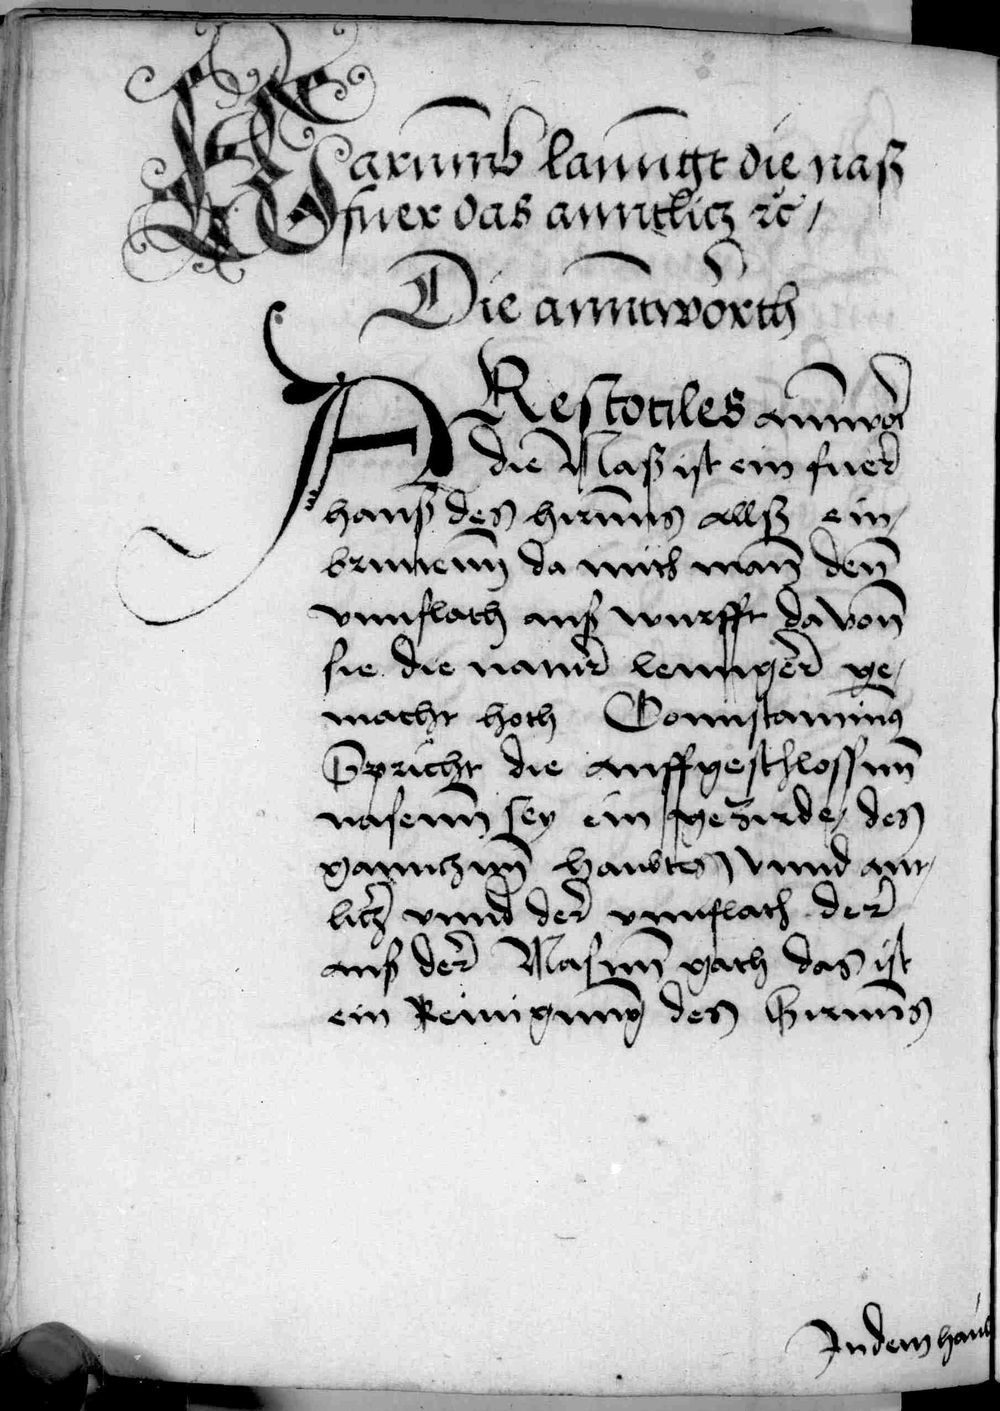 Warumb lanngt die naß
fuer das anntlicz ꝛc /
Die anntworth
ARestotiles anntwort
die Naß ist ein fuer
hauß des hirnns allß ein /
brinnenn da mith mann denn
vnnflath auß wurfft da vonn
sie die natur lennger ge /
macht hoth Connstantinus
Spricht die auffgeschlossenn
nasenn sey ein gezirde / des
ganntzenn haubtes / vnnd ant /
litz vnnd der vnnflath der
auß der Nasenn gath das ist
ein Reinigunng des Hirnns
In dem haub